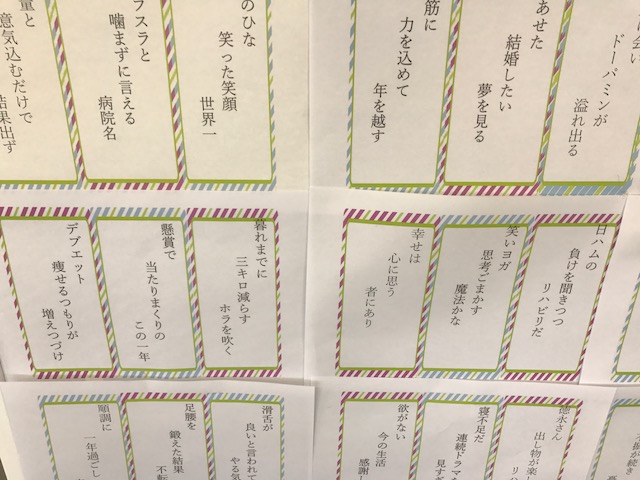 に会い
ドーパミンが
溢れ出る
あせた
結婚したい
夢を見る
筋に
力を込めて
年を越す
のひな
笑った笑顔
世界一
フスラと
噛まずに言える
病院名
量と
意気込むだけで
結果出ず
日ハムの
負けを聞きつつ
リハビリだ
笑いヨガ
思考ごまかす
魔法かな
幸せは
心に思う
者にあり
暮れまでに
三キロ減らす
ホラを吹く
懸賞で
当たりまくりの
この一年
デブエット
痩せるつもりが
増えつづけ
が続き
徳永さん
出し物が楽し
リハ
寝不足だ
連続ドラマを
見すぎ
欲がない
今の生活
感謝し
滑舌が
良いと言われて
やる気
足腰を
鍛えた結果
不転
順調に
一年過ごし